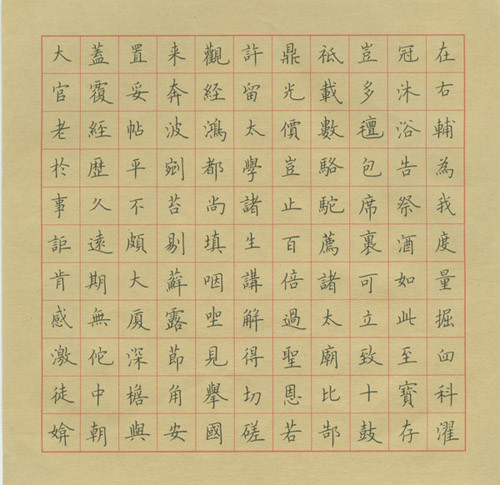 在右輔為我度量掘臼科濯
冠沐浴告祭酒如此至寶存
豈多氊包席裹可立致十鼓
祗載數駱駝薦諸太廟比郜
鼎光價豈止百倍過聖恩若
許留太學諸生講解得切磋
觀経鴻都尚填咽坐見舉國
来奔波剜苔剔蘚露節角安
置妥帖平不頗大厦深檐與
蓋覆経歷久遠期無佗中朝
大官老扵事詎肯感激徒媕